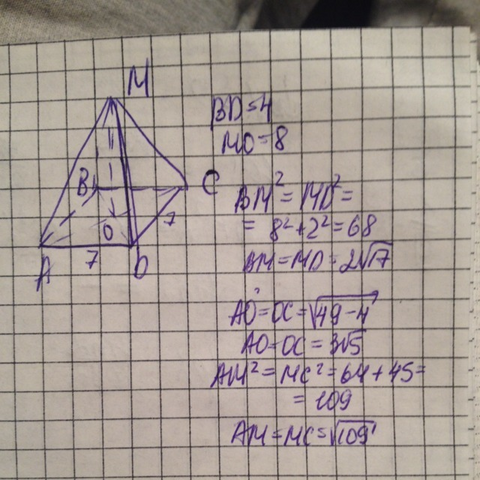 M
B
C
O
7
A
7
D
BD=4
MO=8
BM²=MD²=
= 8²+2²=68
BM=MD=2√17
AO=OC=√49-4
AO=OC=3√5
AM²=MC²=64+45=
= 109
AM=MC=√109